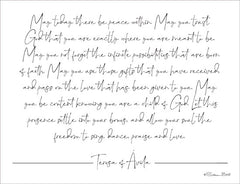 May today there be peace within. May you trust
God that you are exactly where you are meant to be.
May you not forget the infinite possibilities that are born
of faith. May you use those gifts that you have received
and pass on the love that has been given to you. May
you be content knowing you are a child of God. Let this
presence settle into your bones, and allow your soul the
freedom to sing, dance, praise and love.
Teresa of Avila